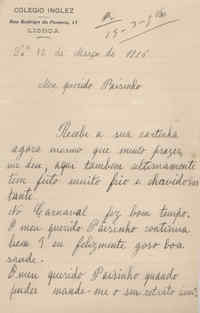 COLEGIO INGLEZ
Rua Rodrigo da Fonseca, 17
LISBOA
R.
15-3-916
Lª 12 de Março de 1916
Meu querido Paisinho
Recebi a sua cartinha
agora mesmo que muito prazer
me deu, aqui tambem ultimamente
tem feito muito frio e chovido bas
tante.
No Carnaval fez bom tempo.
O meu querido Paisinho continua
bem? eu felizmente goso boa
saude.
O meu querido Paisinho quando
puder mande-me o seu retrato sim?